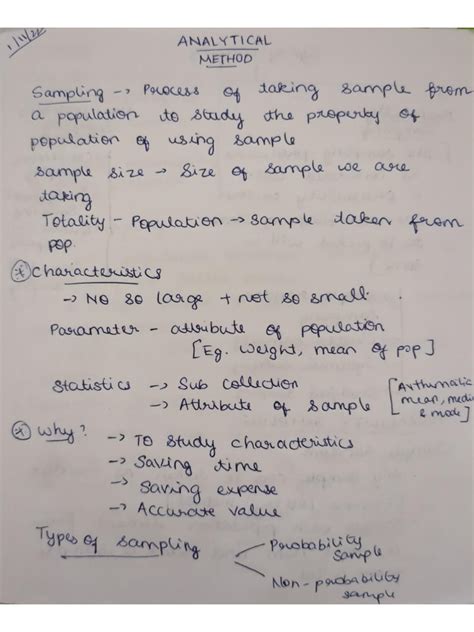 1/11/22
ANALYTICAL
METHOD
Sampling -> Process of taking sample from
a population to study the property of
population of using sample
Sample size -> Size of sample we are
taking
Totality - Population -> Sample taken from
pop.
* Characteristics
-> No so large + not so small.
Parameter - attribute of population
[Eg. Weight, mean of pop]
Statistics -> Sub Collection [Arthmatic
-> Attribute of sample mean, media
& mode]
* Why? -> To study characteristics
-> Saving time
-> Saving expense
-> Accurate value
Types of sampling - Probability
sample
Non-probability
sample